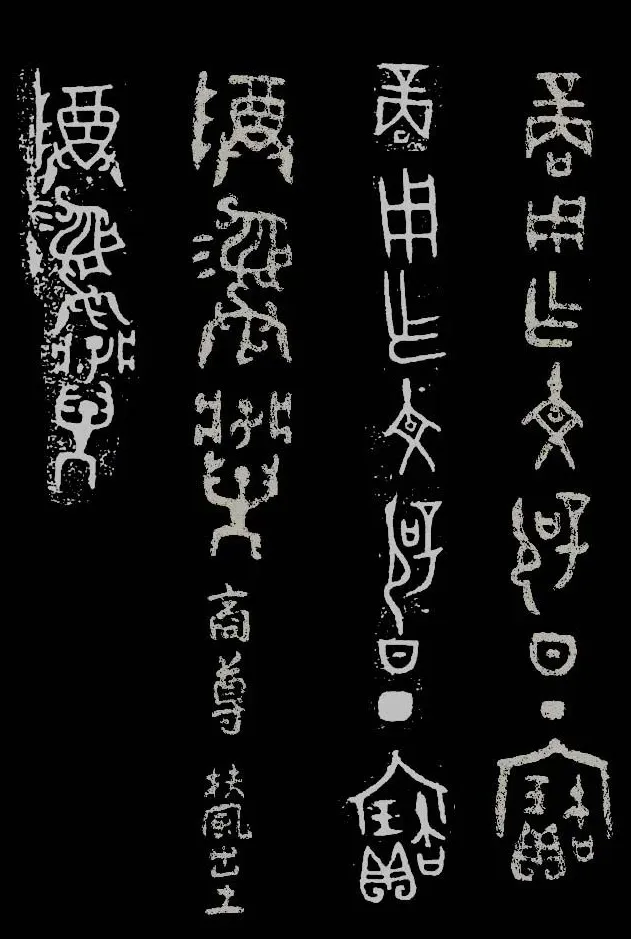 商用乍文辟日丁寶
商用乍文辟日丁寶
尊彝
商尊
扶風出土
尊彝